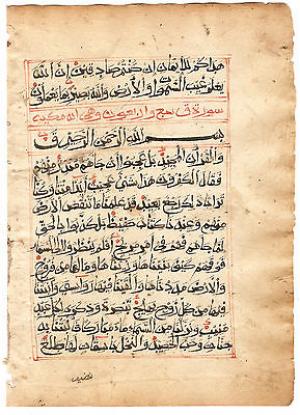 هداكم للايمان ان كنتم صادقين ان الله
يعلم غيب السموات والارض والله بصير بما تعملون
سورة ق واربعون مكية
بسم الله الرحمن الرحيم ق
والقران المجيد بل عجبوا ان جاهم منذر منهم
فقال الكفرون هذا شئ عجيب اءذا متنا وكنا
ترابا ذلك رجع بعيد قد علمنا ما تنقص الارض
منهم وعندنا كتاب حفيظ بل كذبوا بالحق
لما جاهم فهم في امر مريج افلم ينظروا الى السماء
فوقهم كيف بنيناها وزيناها وما لها من فروج
والارض مددناها والقينا فيها رواسي وانبتنا
فيها من كل زوج بهيج تبصرة وذكرى لكل عبد
منيب ونزلنا من السماء ماء مباركا فانبتنا به
جنات وحب الحصيد والنخل باسقات لها طلع
نضيد